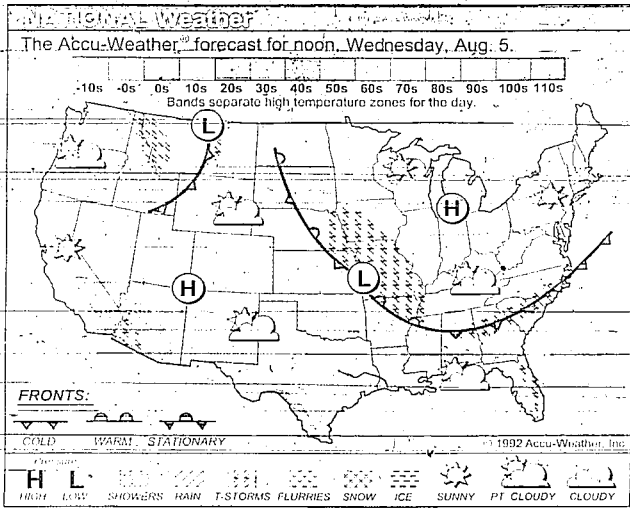 NATIONAL Weather
The Accu-Weather® forecast for noon, Wednesday, Aug. 5.
-10s -0s 0s 10s 20s 30s 40s 50s 60s 70s 80s 90s 100s 110s
Bands separate high temperature zones for the day.
L
H
H
L
FRONTS:
COLD WARM STATIONARY
© 1992 Accu-Weather, Inc.
Pressure
H L
HIGH LOW SHOWERS RAIN T-STORMS FLURRIES SNOW ICE SUNNY PT. CLOUDY CLOUDY